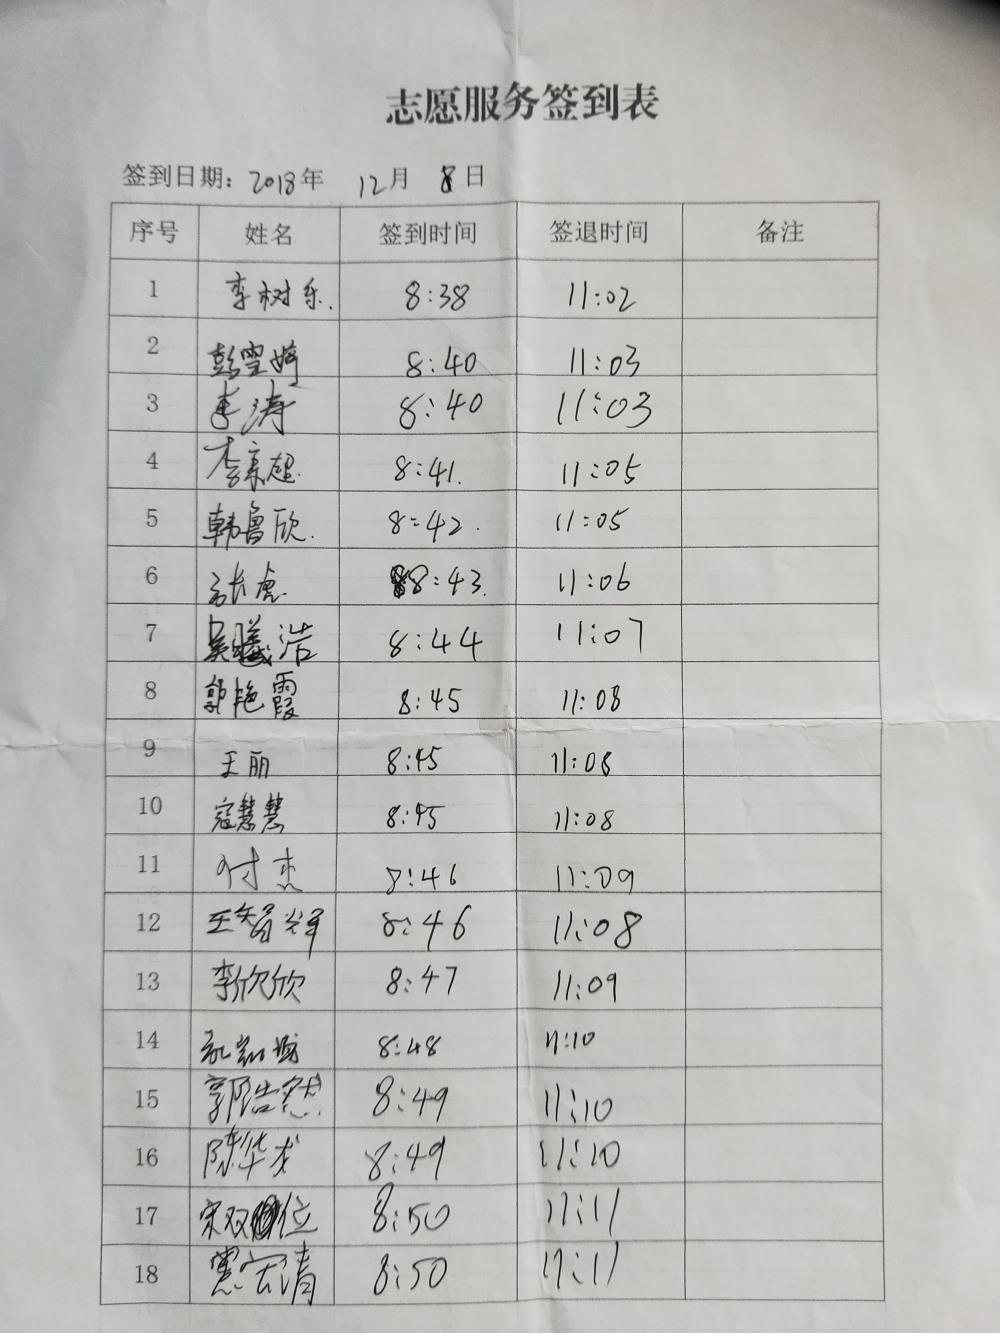 志愿服务签到表
签到日期: 2018年 12月 8日
序号 姓名 签到时间 签退时间 备注
1 李树乐. 8:38 11:02
2 彭雪婷 8:40 11:03
3 李涛 8:40 11:03
4 李京超. 8:41. 11:05
5 韩鲁欣. 8:42. 11:05
6 8:43. 11:06
7 吴曦浩 8:44 11:07
8 郭艳霞 8:45 11:08
9 王丽 8:45 11:08
10 寇慧慧 8:45 11:08
11 付杰 8:46 11:09
12 王智辉 8:46 11:08
13 李欣欣 8:47 11:09
14 8:48 11:10
15 郭浩然 8:49 11:10
16 陈华龙 8:49 11:10
17 宋双位 8:50 11:11
18 8:50 11:11